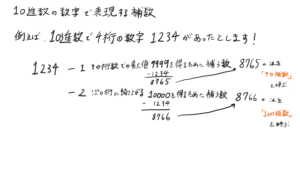 10進数の数字で表現する補数
例えば、10進数で4桁の数字 1234 があったとします！
1234 － 1 その桁数での最大値 9999を得るために補う数 8765 ←これを
－1234
8765
「9の補数」
と呼ぶ
－ 2 次の桁に繰り上がる 10000を得るために補う数 8766 ←これを
－1234
8766
「10の補数」
と呼ぶ